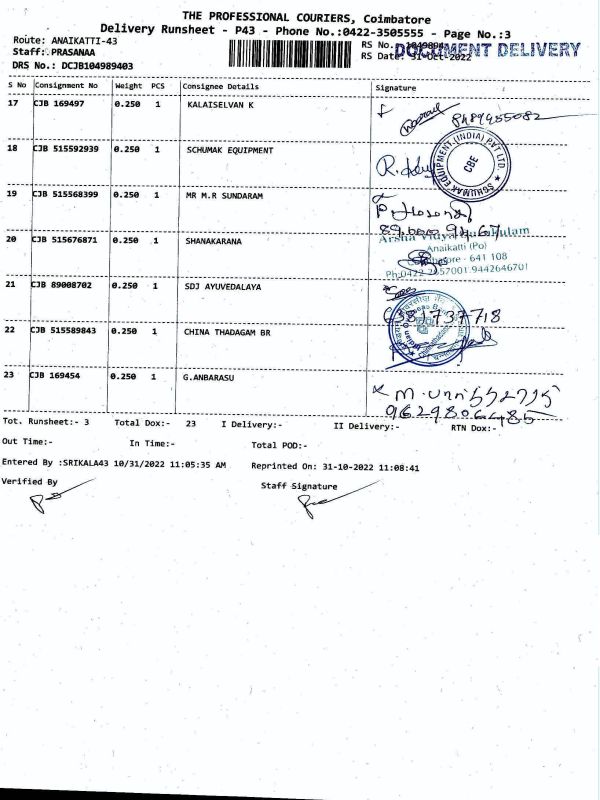 THE PROFESSIONAL COURIERS, Coimbatore
Delivery Runsheet - P43 - Phone No.:0422-3505555 - Page No.:3
Route: ANAIKATTI-43
RS No.
DOCUMENT DELIVERY
Staff: PRASANAA
RS Date: 31-Oct-2022
DRS No.: DCJB104989403
S No Consignment No Weight PCS Consignee Details Signature
17 CJB 169497 0.250 1 KALAISELVAN K
18 CJB 515592939 0.250 1 SCHUMAK EQUIPMENT
SCHUMAK EQUIPMENT (INDIA) PVT LTD.
CBE
19 CJB 515568399 0.250 1 MR M.R SUNDARAM
20 CJB 515676871 0.250 1 SHANAKARANA
Arsha Vidya Gurukulam
Anaikatti (Po)
Coimbatore - 641 108
Ph:0422 2657001 9442646701
21 CJB 89008702 0.250 1 SDJ AYUVEDALAYA
22 CJB 515589843 0.250 1 CHINA THADAGAM BR
23 CJB 169454 0.250 1 G.ANBARASU
Tot. Runsheet:- 3 Total Dox:- 23 I Delivery:- II Delivery:- RTN Dox:-
Out Time:- In Time:- Total POD:-
Entered By :SRIKALA43 10/31/2022 11:05:35 AM Reprinted On: 31-10-2022 11:08:41
Verified By Staff Signature